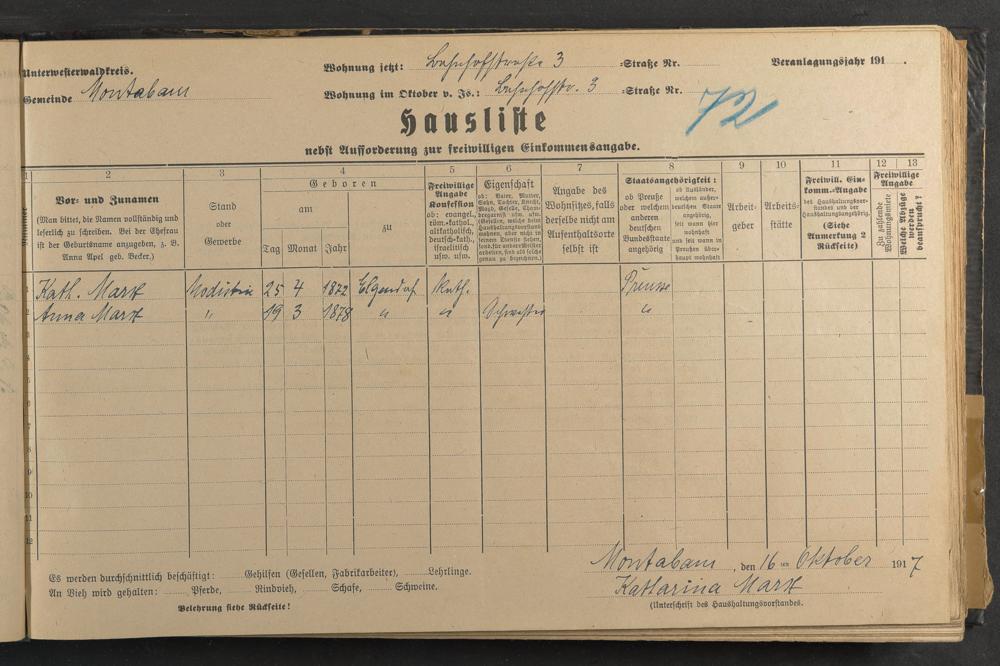 Unterwesterwaldkreis. Wohnung jetzt: Bahnhofstraße 3 =Straße Nr. Veranlagungsjahr 191 .
Gemeinde Montabaur Wohnung im Oktober v. Js.: Bahnhofstr. 3 =Straße Nr.
72
Hausliste
nebst Aufforderung zur freiwilligen Einkommensangabe.
1 2 3 4 5 6 7 8 9 10 11 12 13
Vor- und Zunamen
(Man bittet, die Namen vollständig und
leserlich zu schreiben. Bei der Ehefrau
ist der Geburtsname anzugeben, z. B.
Anna Apel geb. Becker.)
Stand
oder
Gewerbe
Geboren
am
zu
Tag Monat Jahr
Freiwillige
Angabe
Konfession
ob: evangel.,
röm.-kathol.,
altkatholisch,
deutsch-kath.,
israelitisch
usw. usw.
Eigenschaft
ob: Vater, Mutter,
Sohn, Tochter, Knecht,
Magd, Geselle, Cham-
bregarnist usw. usw.
(Gesellen, welche beim
Haushaltungsvorstand
wohnen, aber nicht in
seinem Dienste stehen,
sond. für andere Meister
arbeiten, sind als solche
genau zu bezeichnen.)
Angabe des
Wohnsitzes, falls
derselbe nicht am
Aufenthaltsorte
selbst ist
Staatsangehörigkeit:
ob Preuße
oder welchem
anderen
deutschen
Bundesstaate
angehörig
ob Ausländer,
welchem außer-
deutschen Staate
angehörig,
seit wann hier
wohnhaft
und seit wann in
Preußen über-
haupt wohnhaft
Arbeit-
geber
Arbeits-
stätte
Freiwill. Ein-
komm.-Angabe
des Haushaltungsvor-
standes und der
Haushaltungsangehörig.
(Siehe
Anmerkung 2
Rückseite)
Freiwillige
Angabe
Zu zahlende
Wohnungsmiete
Welche Abzüge
werden
beansprucht?
Kath. Marx Modistin 25 4 1872 Elgendorf kath. Preusse
Anna Marx " 19 3 1878 " " Schwester "
Montabaur, den 16ten Oktober 1917
Katharina Marx
(Unterschrift des Haushaltungsvorstandes.
Es werden durchschnittlich beschäftigt: Gehilfen (Gesellen, Fabrikarbeiter), Lehrlinge.
An Vieh wird gehalten: Pferde, Rindvieh, Schafe, Schweine.
Belehrung siehe Rückseite!